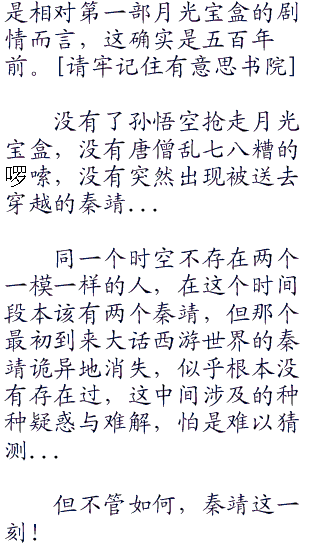 是相对第一部月光宝盒的剧
情而言，这确实是五百年
前。[请牢记住有意思书院]
没有了孙悟空抢走月光
宝盒，没有唐僧乱七八糟的
啰嗦，没有突然出现被送去
穿越的秦靖...
同一个时空不存在两个
一模一样的人，在这个时间
段本该有两个秦靖，但那个
最初到来大话西游世界的秦
靖诡异地消失，似乎根本没
有存在过，这中间涉及的种
种疑惑与难解，怕是难以猜
测...
但不管如何，秦靖这一
刻！